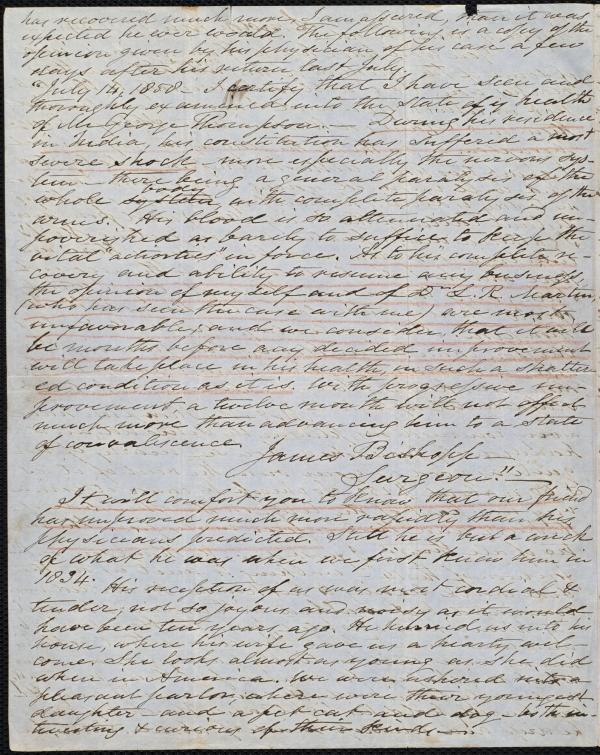 has recovered much more, I am assured, than it was
expected he ever would. The following is a copy of the
opinion given by his physician of his case a few
days after his return last July.
"July 14, 1858 - I certify that I have seen and
thoroughly examined into the state of ye health
of Mr George Thompson. During his residence
in India, his constitution has suffered a most
severe shock - more especially the nervous sys-
tem - there being a general paralysis of the
whole system body, with complete paralysis of the
arms. His blood is so attenuated and im-
poverished as barely to suffice to keep the
vital "activities" in force. As to his complete re-
covery and ability to resume any business
the opinion of myself and of Dr L. R. Martin
(who has seen the case with me) are most
unfavorable; and we consider that it will
be months before any decided improvement
will take place in his health, in such a shatter
ed condition as it is. With progressive im-
provement, a twelve month will not effect
much more than advancing him to a state
of convalescence.
James Bishopp
Surgeon."
It will comfort you to know that our friend
has improved much more rapidly than his
physicians predicted. Still he is but a wreck
of what he was when we first knew him in
1834.
His reception of us was most cordial &
tender; not so joyous and noisy as it would
have been ten years ago. He hurried us into his
house, where his wife gave us a hearty wel-
come. She looks almost as young as she did
when in America. We were ushered into a
pleasant parlor, where were their youngest
daughter - and a pet cat and dog - both in-
teresting & curious of their kinds -